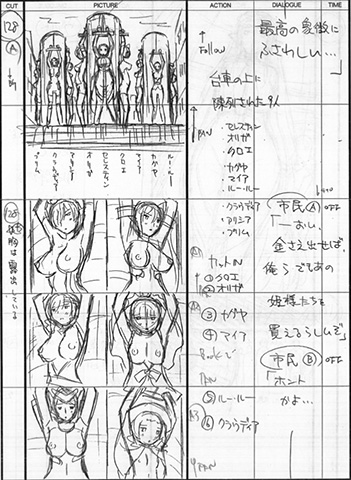 CUT
PICTURE
ACTION
DIALOGUE
TIME
128
A
Follow
最高の象徴に
ふさわしい…」
台車の上に
陳列された9人
PAN
・セレスティン
・オリガ
・クロエ
・カグヤ
・マイア
・ルー・ルー
・クラウディア
・アリシア
・プリム
ルー・ルー
カグヤ
クロエ
セレスティン
オリガ
マイア
クラウディア
アリシア
プリム
市民 A OFF
「おい、
金さえ出せば、
俺らでもあの
姫様たちを
買えるらしいぞ」
市民 B OFF
「ホント
かよ…
胸は露出
している
カットIN
① クロエ
② オリガ
③ カグヤ
④ マイア
Bookで
PAN
⑤ ルー・ルー
⑥ クラウディア
PAN